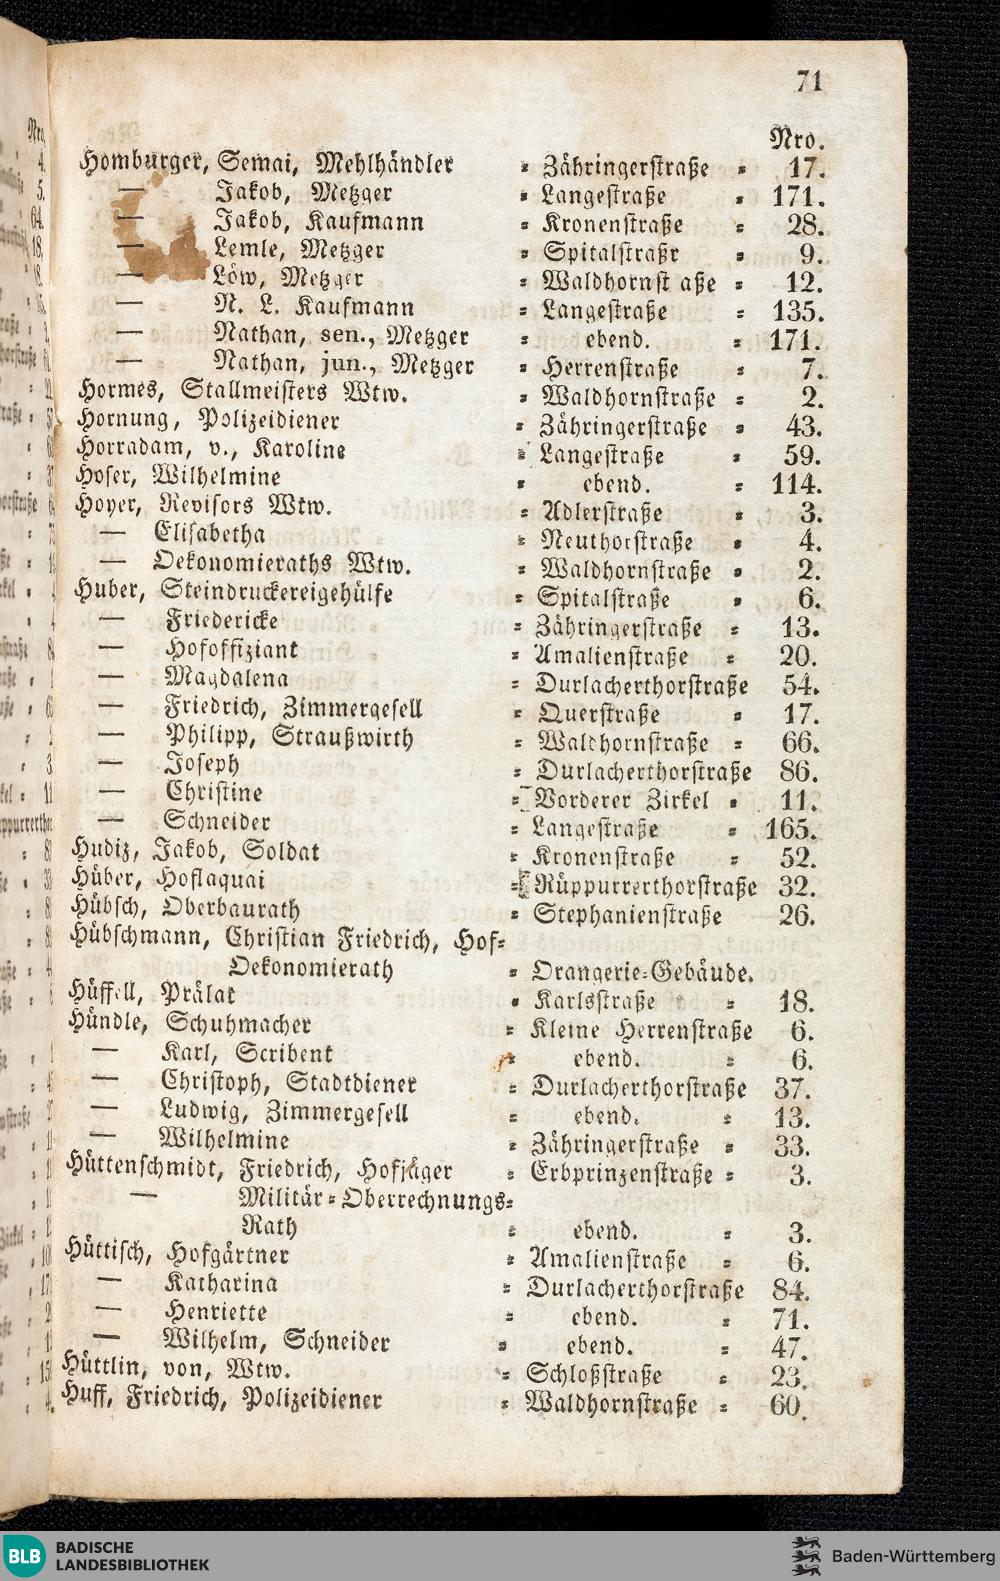 71
Nro.
Homburger, Semai, Mehlhändler = Zähringerstraße = 17.
— Jakob, Metzger = Langestraße = 171.
— Jakob, Kaufmann = Kronenstraße = 28.
— Lemle, Metzger = Spitalstraßr = 9.
— Löw, Metzger = Waldhornst aße = 12.
— N. L. Kaufmann = Langestraße = 135.
— Nathan, sen., Metzger = ebend. = 171.
— Nathan, jun., Metzger = Herrenstraße = 7.
Hormes, Stallmeisters Wtw. = Waldhornstraße = 2.
Hornung, Polizeidiener = Zähringerstraße = 43.
Horradam, v., Karoline = Langestraße = 59.
Hoser, Wilhelmine = ebend. = 114.
Hoyer, Revisors Wtw. = Adlerstraße = 3.
— Elisabetha = Neuthorstraße = 4.
— Oekonomieraths Wtw. = Waldhornstraße = 2.
Huber, Steindruckereigehülfe = Spitalstraße = 6.
— Friedericke = Zähringerstraße = 13.
— Hofoffiziant = Amalienstraße = 20.
— Magdalena = Durlacherthorstraße 54.
— Friedrich, Zimmergesell = Querstraße = 17.
— Philipp, Straußwirth = Waldhornstraße = 66.
— Joseph = Durlacherthorstraße 86.
— Christine = Vorderer Zirkel = 11.
— Schneider = Langestraße = 165.
Hudiz, Jakob, Soldat = Kronenstraße = 52.
Hüber, Hoflaquai = Rüppurrerthorstraße 32.
Hübsch, Oberbaurath = Stephanienstraße 26.
Hübschmann, Christian Friedrich, Hof=
Oekonomierath = Orangerie=Gebäude.
Hüffell, Prälat = Karlsstraße = 18.
Hündle, Schuhmacher = Kleine Herrenstraße 6.
— Karl, Scribent = ebend. = 6.
— Christoph, Stadtdiener = Durlacherthorstraße 37.
— Ludwig, Zimmergesell = ebend. = 13.
— Wilhelmine = Zähringerstraße = 33.
Hüttenschmidt, Friedrich, Hofjäger = Erbprinzenstraße = 3.
— Militär=Oberrechnungs=
Rath = ebend. = 3.
Hüttisch, Hofgärtner = Amalienstraße = 6.
— Katharina = Durlacherthorstraße 84.
— Henriette = ebend. = 71.
— Wilhelm, Schneider = ebend. = 47.
Hüttlin, von, Wtw. = Schloßstraße = 23.
Huff, Friedrich, Polizeidiener = Waldhornstraße = 60.
BLB BADISCHE
LANDESBIBLIOTHEK
Baden-Württemberg